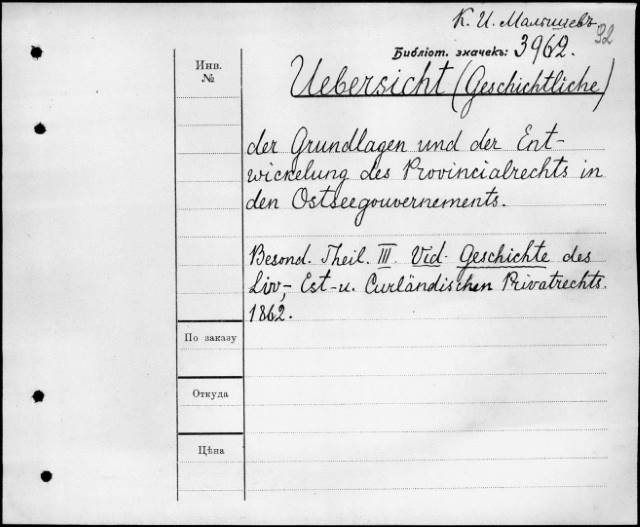 К. И. Малышевъ.
92
Библіот. значекъ: 3962.
Инв.
№
Uebersicht (Geschichtliche)
der Grundlagen und der Ent-
wickelung des Provincialrechts in
den Ostseegouvernements.
Besond. Theil. III. Vid. Geschichte des
Liv-, Est- u. Curländischen Privatrechts.
1862.
По заказу
Откуда
Цѣна